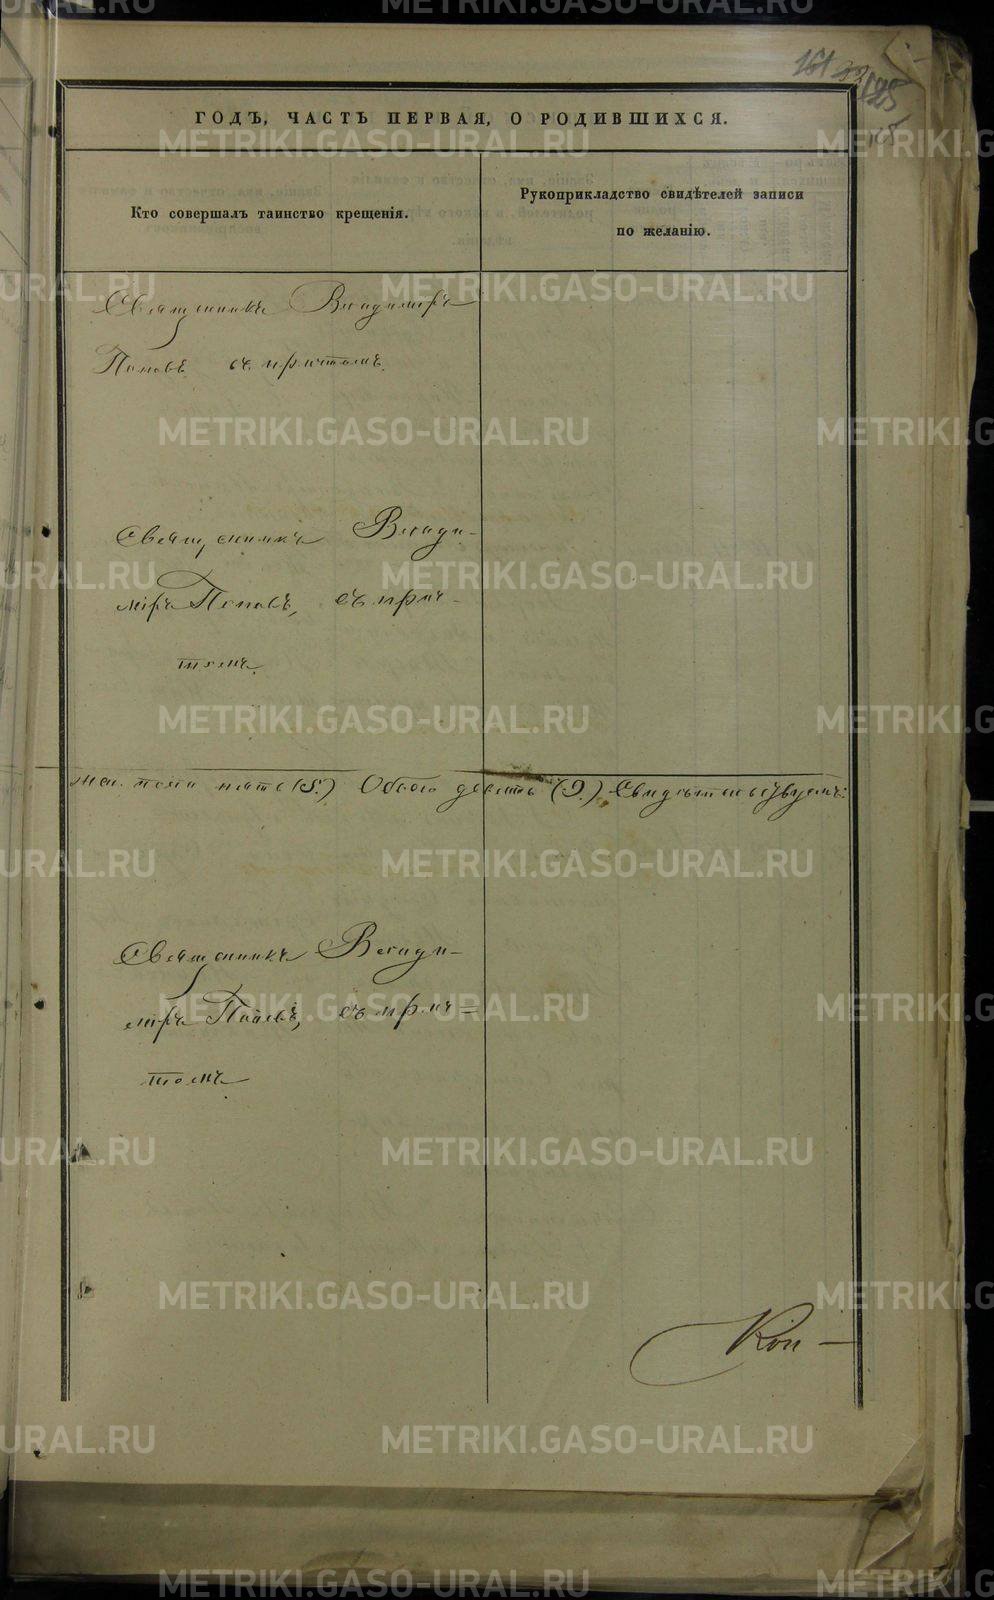 ГОДЪ, ЧАСТЬ ПЕРВАЯ, О РОДИВШИХСЯ.
Кто совершалъ таинство крещенія.
Рукоприкладство свидѣтелей записи
по желанію.
Священникъ Владиміръ
Поповъ съ причтомъ.
Священникъ Влади-
міръ Поповъ, съ прич-
томъ.
пола пять (5.) Обоего девять (9.) Свидѣтельствуемъ:
Священникъ Влади-
міръ Поповъ, съ прич-
томъ
Кон-
METRIKI.GASO-URAL.RU